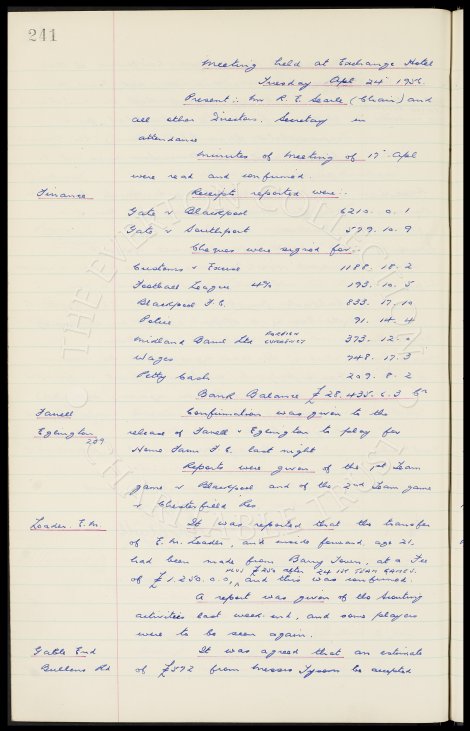 241
Meeting held at Exchange Hotel
Tuesday Apl 24 1956.
Present: Mr R. E. Searle (Chair) and
all other Directors. Secretary in
attendance
Minutes of Meeting of 17 Apl
were read and confirmed.
Finance Receipts reported were:
Gate v Blackpool 6210. 0. 1
Gate v Southport 579. 10. 9
Cheques were signed for
Customs & Excise 1188. 18. 2
Football League 4% 193. 10. 5
Blackpool F.C. 833. 17. 10
Police 91. 14. 4
Midland Bank Ltd FOREIGN CURRENCY 373. 12. 0
Wages 748. 17. 3
Petty Cash 209. 8. 2
Bank Balance £28,435. 6. 3 Cr
Farrell Confirmation was given to the
Eglington release of Farrell & Eglington to play for
209
Home Farm F.C. last night
Reports were given of the 1st Team
game v Blackpool and of the 2nd Team game
v Chesterfield Res
Loader. E.M. It was reported that the transfer
of E.M. Loader, and inside forward, age 21.
had been made from Barry Town, at a Fee
PLUS £250 after 24 1ST TEAM GAMES.
of £1.250.0.0, and this was confirmed.
A report was given of the Scouting
activities last week-end, and some players
were to be seen again.
Gable End It was agreed that an estimate
Bullens Rd of £572 from Messrs Tyson be accepted
THE EVERTON COLLECTION
CHARITABLE TRUST